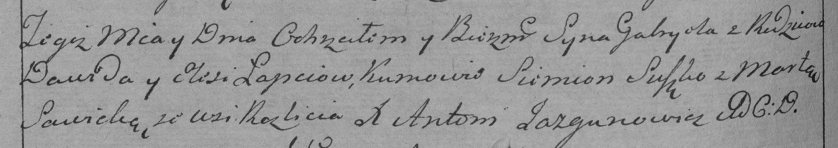 Tegoż Mca y Dnia Ochrzciłem y Bierzm Syna Gabryela z Rodziców
Dawida y Elesi Łapciow, Kumowie Siemion Suszko z Martą
Sawicką, ze wsi Rozlicia X Antoni Jazgunowicz AD C: D.